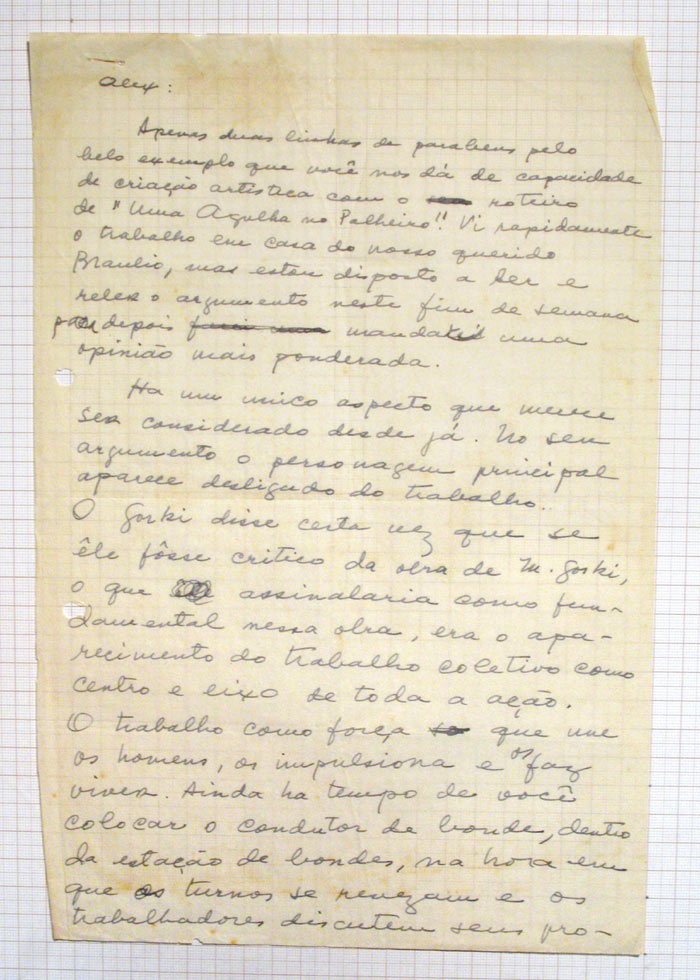 Alex:
Apenas duas linhas de parabens pelo
belo exemplo que você nos dá de capacidade
de criação artística com o roteiro
de "Uma Agulha no Palheiro". Vi rapidamente
o trabalho em casa do nosso querido
Braulio, mas estou disposto a ler e
reler o argumento neste fim de semana
para depois mandar uma
opinião mais ponderada.
Ha um unico aspecto que merece
ser considerado desde já. No seu
argumento o personagem principal
aparece desligado do trabalho.
O Gorki disse certa vez que se
êle fôsse critico da obra de M. Gorki,
o que assinalaria como fun-
damental nessa obra, era o apa-
recimento do trabalho coletivo como
centro e eixo de toda a ação.
O trabalho como força que une
os homens, os impulsiona e os faz
viver. Ainda ha tempo de você
colocar o condutor de bonde, dentro
da estação de bondes, na hora em
que os turnos se revezam e os
trabalhadores discutem seus pro-